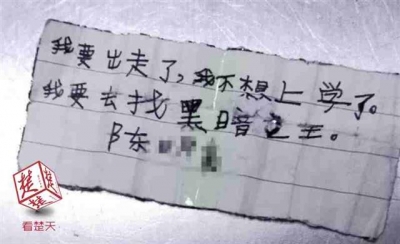 我要出走了,我不想上学了。
我要去找黑暗之王。
陈
看楚天